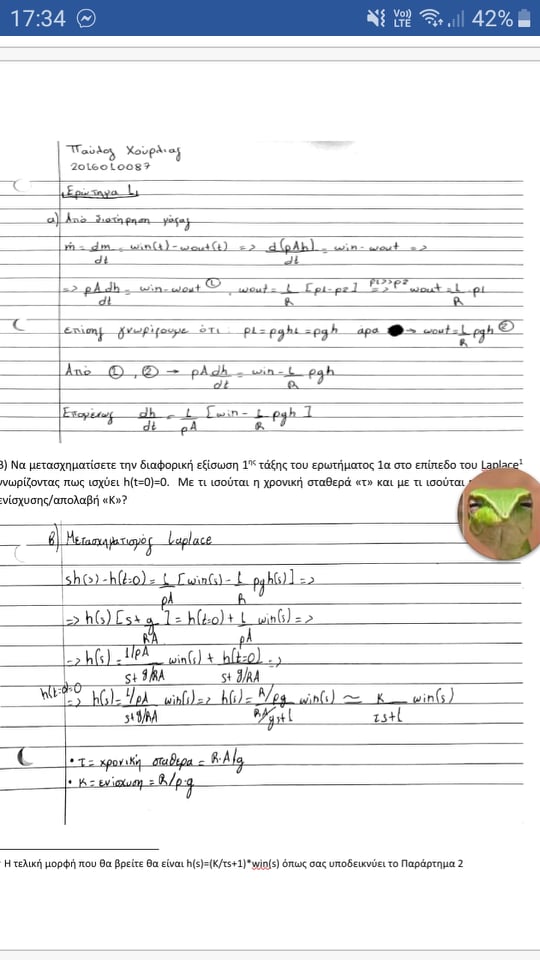 17:34
Vo)) LTE
42%
Παύλος Χούρλιας
2016010087
Ερώτημα 1
α) Από διατήρηση μάζας
ṁ = dm/dt = win(t) - wout(t) => d(ρAh)/dt = win - wout =>
=> ρA dh/dt = win - wout ①, wout = 1/R [p1-p2] p1>>p2 => wout = 1/R p1
επίσης γνωρίζουμε ότι: p1 = ρgh1 = ρgh άρα → wout = 1/R ρgh ②
Από ①, ② → ρA dh/dt = win - 1/R ρgh
Επομένως dh/dt = 1/ρA [win - 1/R ρgh]
β) Να μετασχηματίσετε την διαφορική εξίσωση 1ης τάξης του ερωτήματος 1α στο επίπεδο του Laplace1
γνωρίζοντας πως ισχύει h(t=0)=0. Με τι ισούται η χρονική σταθερά «τ» και με τι ισούται
ενίσχυσης/απολαβή «Κ»?
β) Μετασχηματισμός Laplace
sh(s) - h(t=0) = 1/ρA [win(s) - 1/R ρgh(s)] =>
=> h(s) [s + g/RA] = h(t=0) + 1/ρA win(s) =>
=> h(s) = (1/ρA)/(s + g/RA) win(s) + h(t=0)/(s + g/RA) =>
h(t=0)=0 => h(s) = (1/ρA)/(s+g/RA) win(s) => h(s) = (R/ρg)/(RA/g s+1) win(s) ≃ K/(τs+1) win(s)
• τ = χρονική σταθερα = R·A/g
• K = ενίσχυση = R/ρ·g
Η τελική μορφή που θα βρείτε θα είναι h(s)=(K/τs+1)*win(s) όπως σας υποδεικνύει το Παράρτημα 2